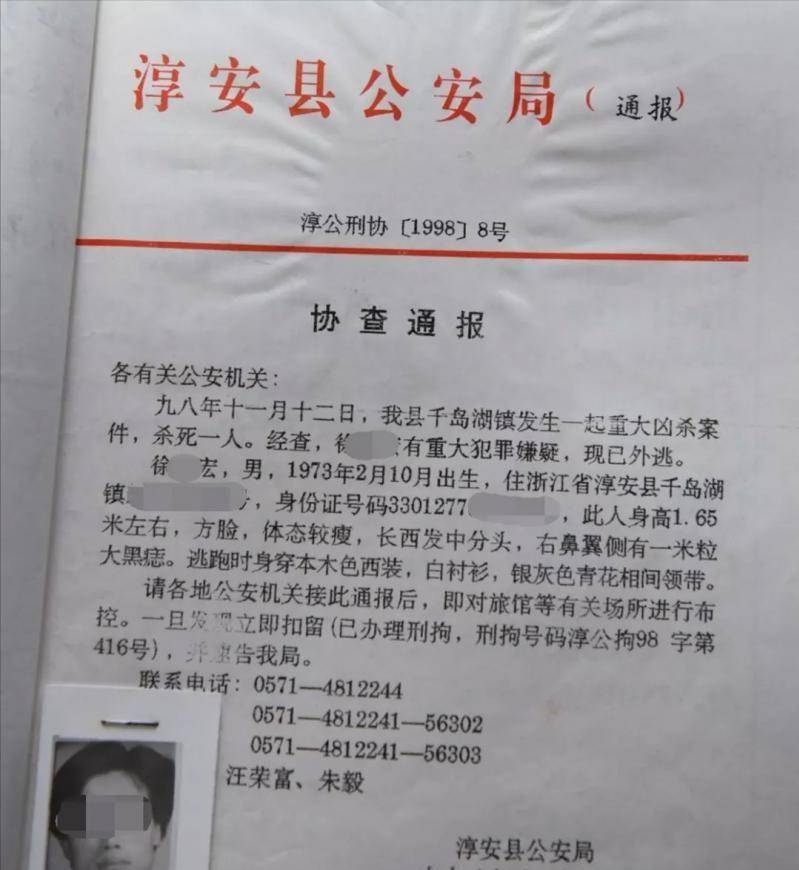 淳安县公安局（通报）
淳公刑协〔1998〕8号
协查通报
各有关公安机关：
九八年十一月十二日，我县千岛湖镇发生一起重大凶杀案
件，杀死一人。经查，徐 有重大犯罪嫌疑，现已外逃。
徐 宏，男，1973年2月10月出生，住浙江省淳安县千岛湖
镇 号，身份证号码3301277 ，此人身高1.65
米左右，方脸，体态较瘦，长西发中分头，右鼻翼侧有一米粒
大黑痣。逃跑时身穿本木色西装，白衬衫，银灰色青花相间领带。
请各地公安机关接此通报后，即对旅馆等有关场所进行布
控。一旦发现立即扣留(已办理刑拘，刑拘号码淳公拘98 字第
416号)，并速告我局。
联系电话：0571—4812244
0571—4812241—56302
0571—4812241—56303
汪荣富、朱毅
淳安县公安局